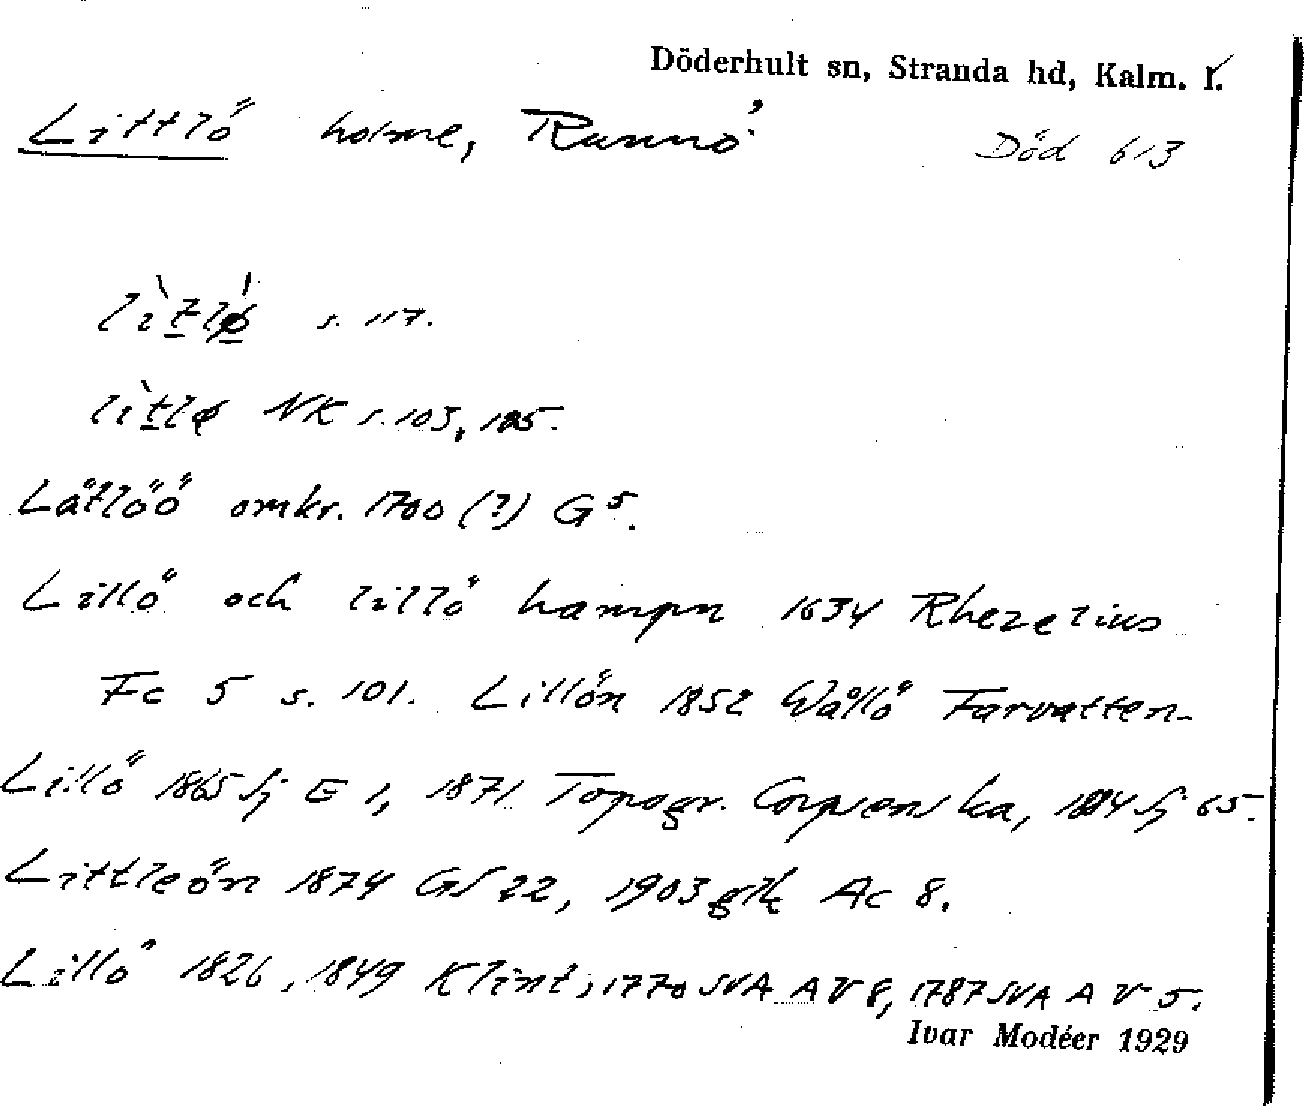 Döderhult sn, Stranda hd, Kalm. l.
Littlö holme, Runnö Död 613
lìtlǿ s. 117.
lìtlø NK s. 103, 105.
Låtlöö omkr. 1700 (?) G 5.
Lillö och lillö hampn 1634 Rhezelius
Fc 5 s. 101. Lillön 1852 Wållö Farvatten-
Lillö 1865 Sj E 1, 1871 Topogr. Corpsenska, Sj 65.
Littleön 1874 GS 22, 1903 Ac 8.
Lillö 1826, 1849 Klint, 1770 SVA A V 8, 1787 SVA A V 5.
Ivar Modéer 1929